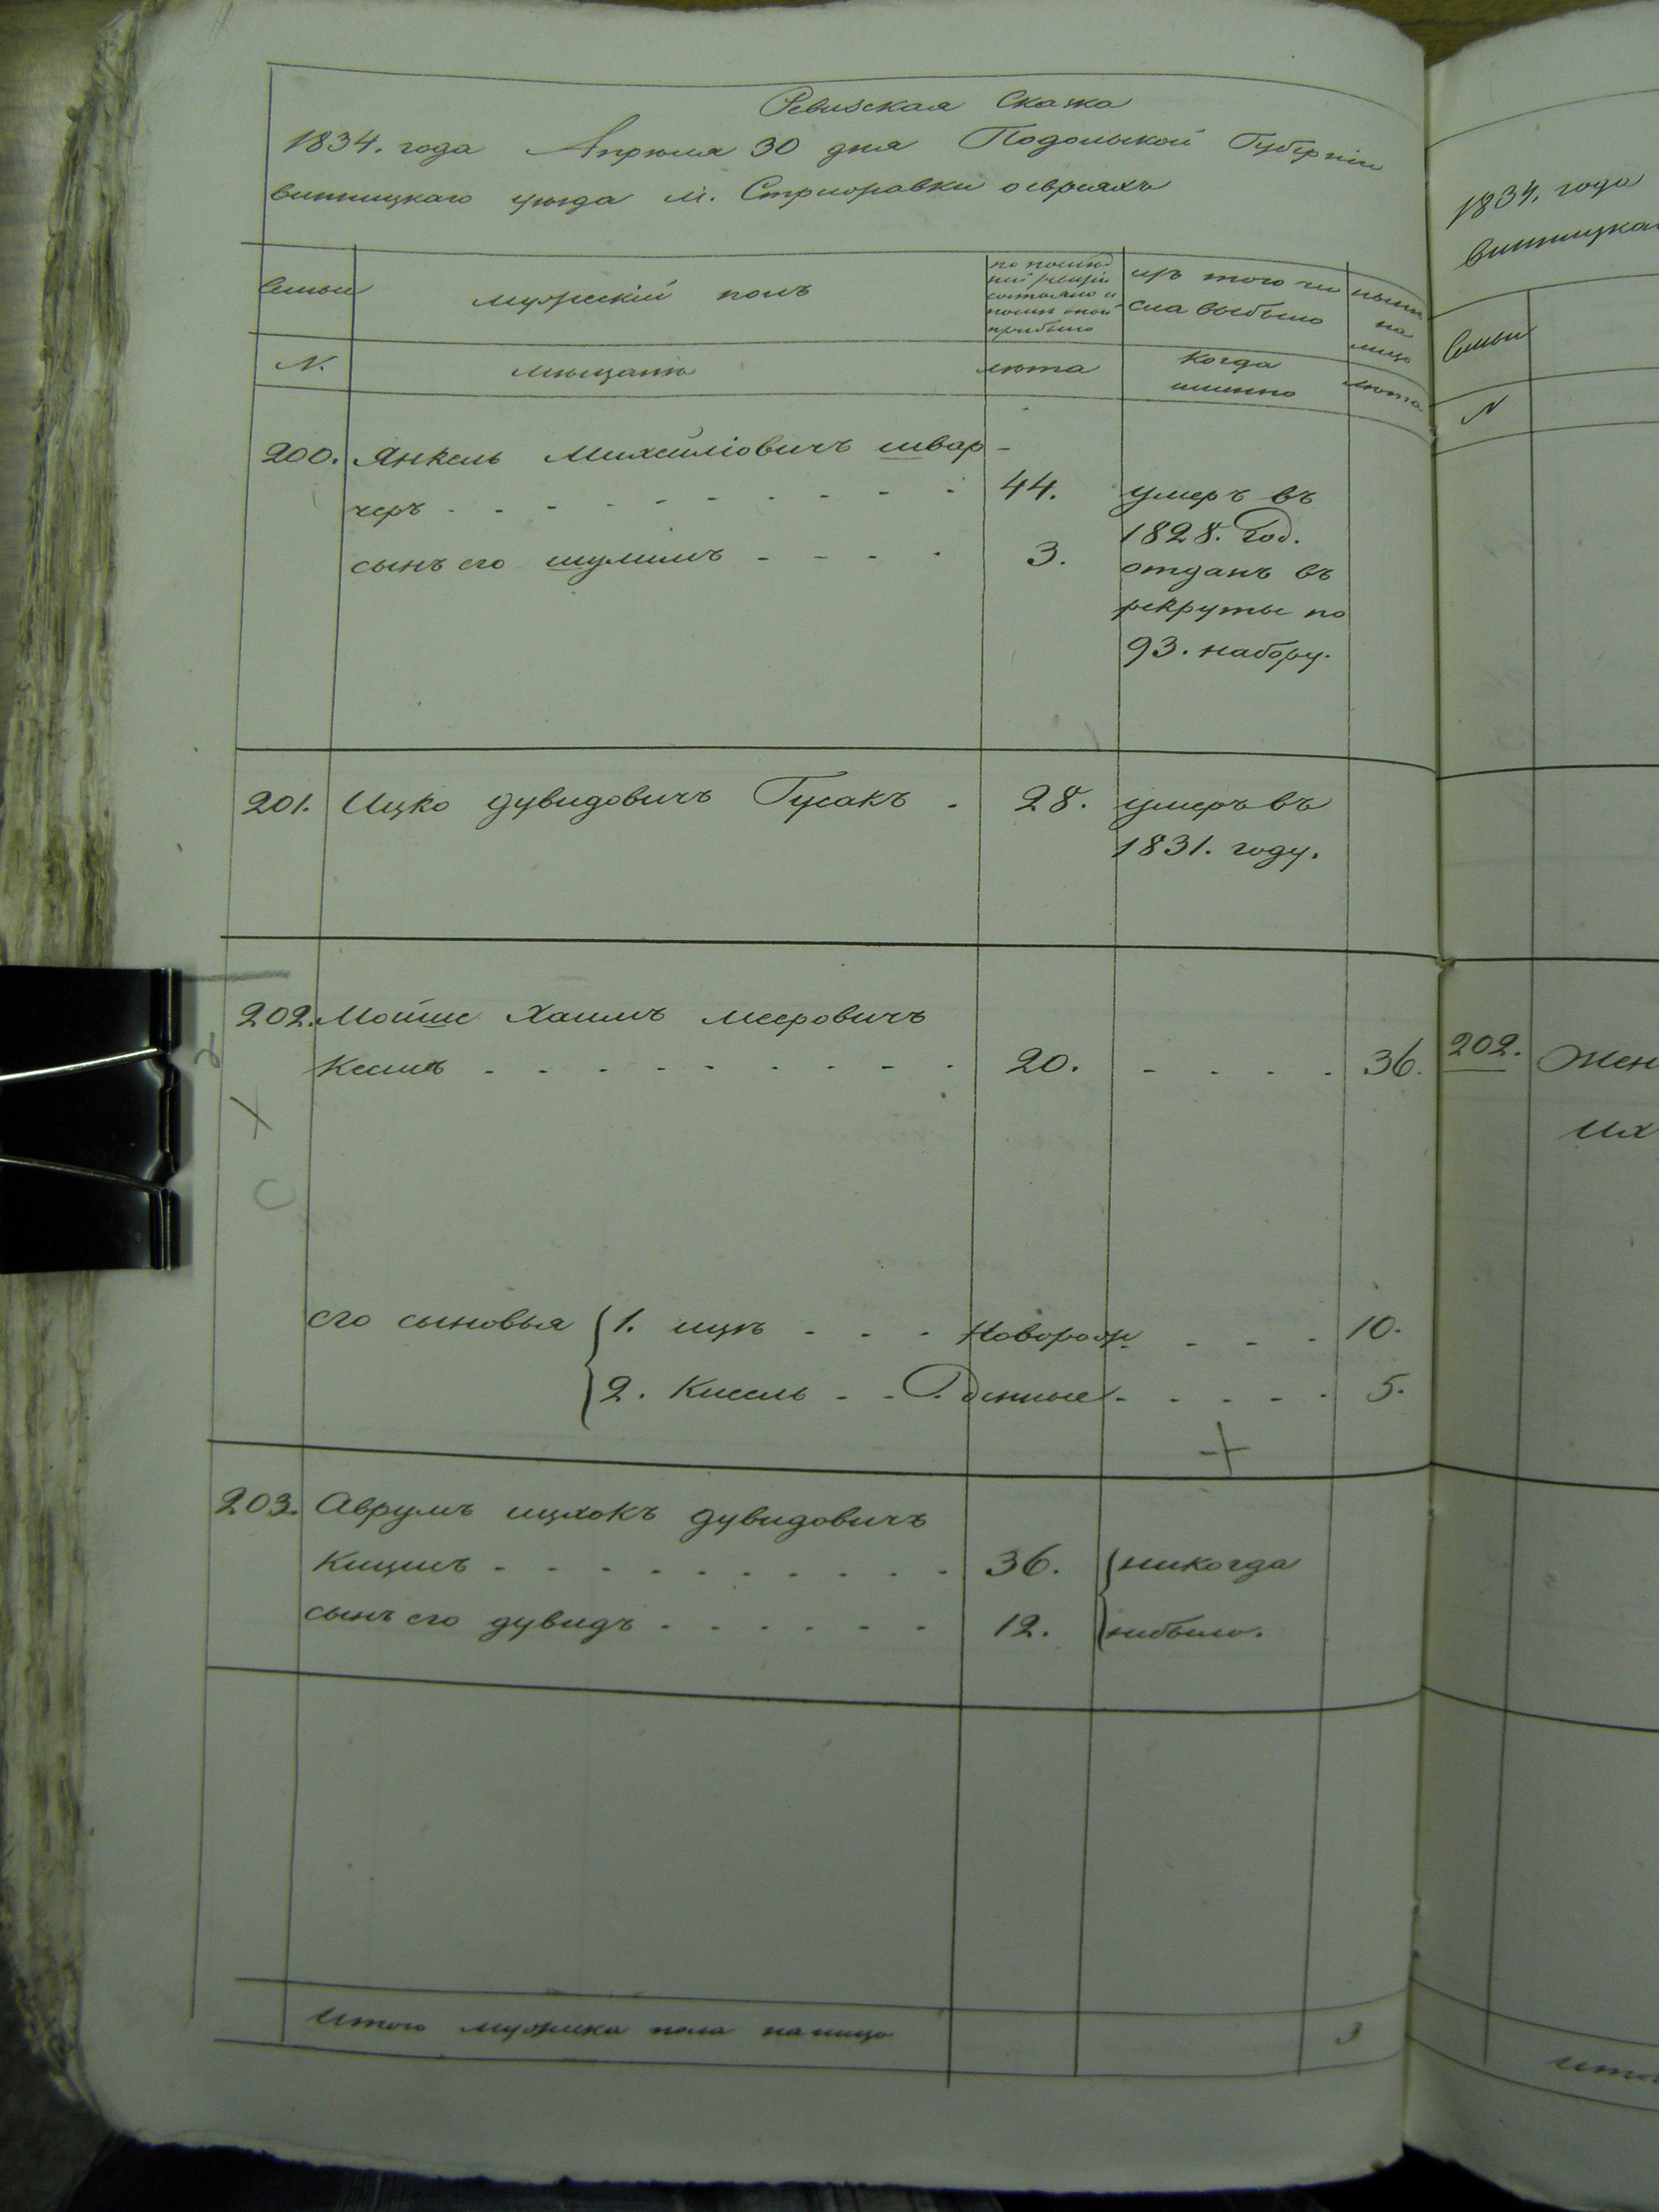 Ревизская Сказка
1834. года Апреля 30 дня Подольской Губерніи
винницкаго уезда м. Стрижавки о евреяхъ
Семьи
мужескій полъ
по послед
ней ревизіи
состояло и
после оной
прибыло
изъ того чи
сла выбыло
ныне
на
лицо
N.
мещане
лета
Когда
именно
лета
200. Янкель Михелиовичъ швар-
черъ 44. умеръ въ
1828. год.
сынъ его шулимъ 3. отданъ въ
рекруты по
93. набору.
201. Ицко дувидовичъ Гусакъ 28. умеръ въ
1831. году.
202. Мойше Хаимъ мееровичъ
20. 36.
его сыновья 1. ицъ Новорож 10.
2. Кисель денные 5.
203. Аврумъ ицхокъ дувидовичъ
36. никогда
сынъ его дувидъ 12. небыло.
Итого мужска пола налицо 3
1834. года
винницка
Семьи
N
202. Жен
их